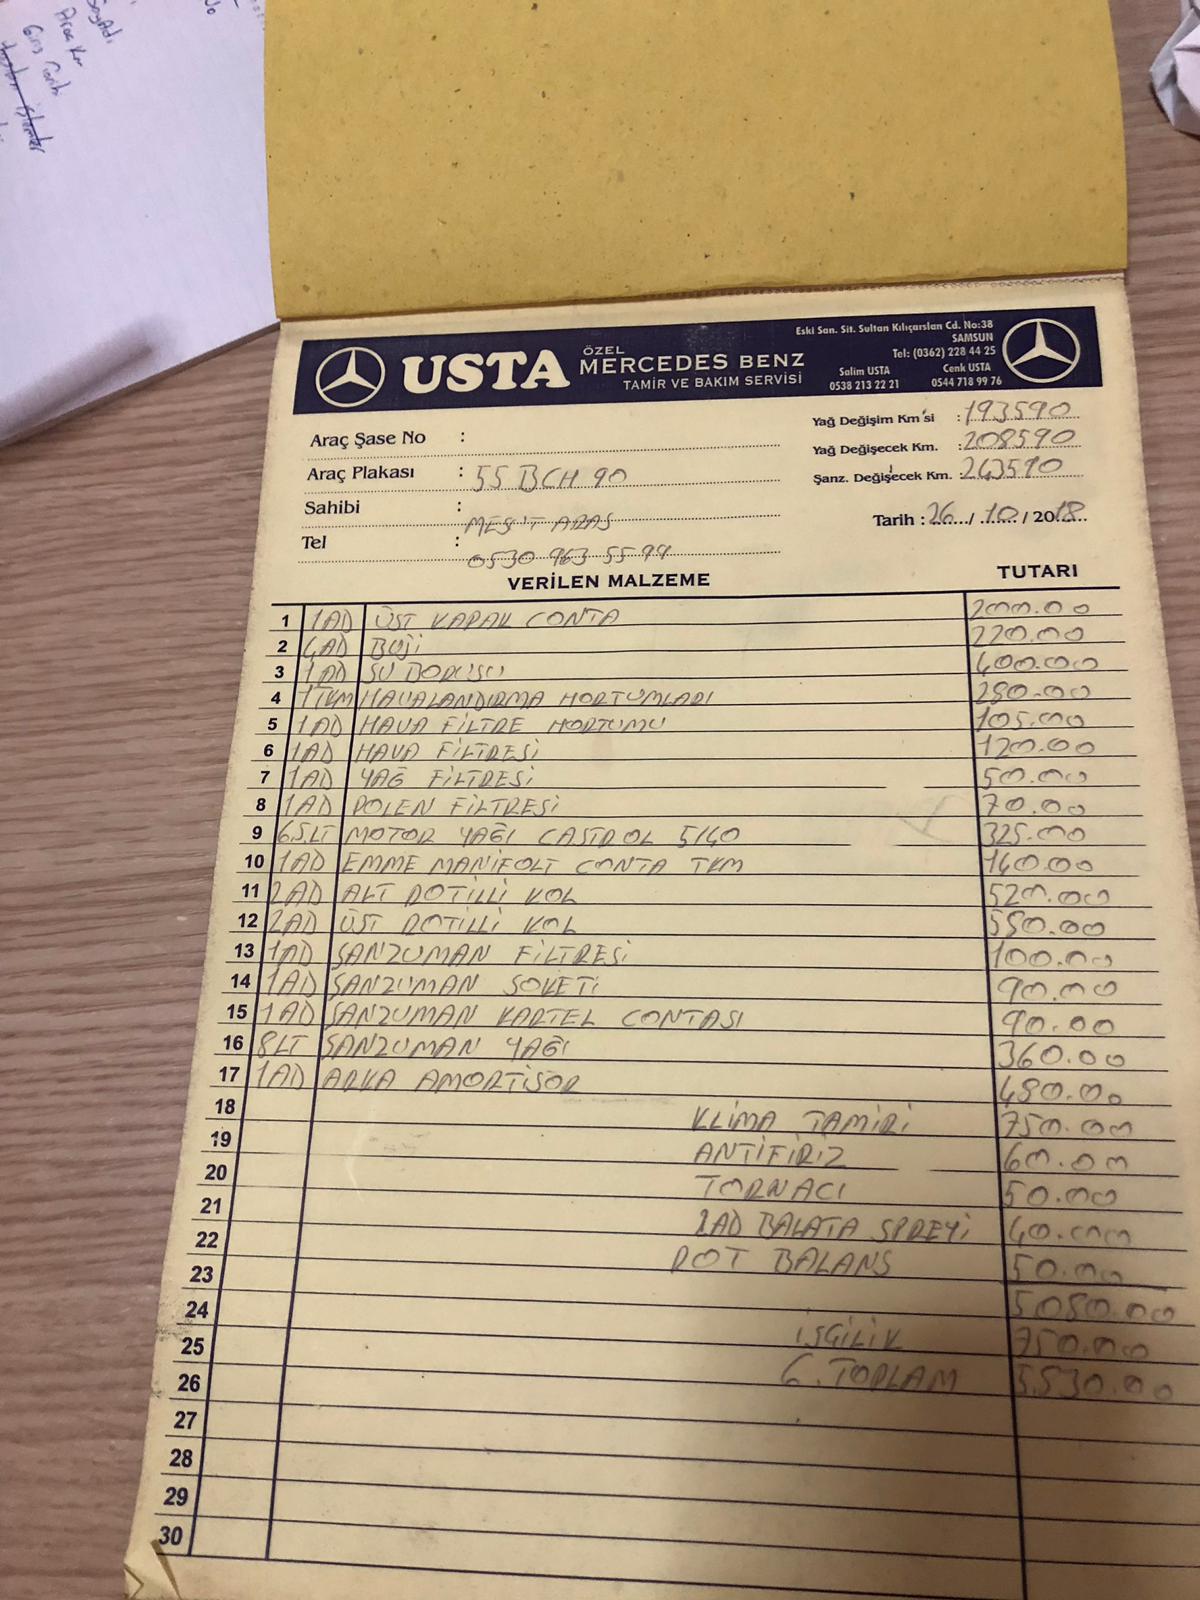 SoyAdı
No
Araç Km
Giriş Tarihi
USTA
ÖZEL
MERCEDES BENZ
TAMİR VE BAKIM SERVİSİ
Eski San. Sit. Sultan Kılıçarslan Cd. No:38
SAMSUN
Tel: (0362) 228 44 25
Salim USTA Cenk USTA
0538 213 22 21 0544 718 99 76
Araç Şase No :
Yağ Değişim Km'si : 193590
Araç Plakası : 55 BCH 90
Yağ Değişecek Km. : 208590
Şanz. Değişecek Km. 243590
Sahibi : MESUT ARAS
Tarih : 26 / 10 / 2018
Tel : 0530 963 55 99
VERİLEN MALZEME TUTARI
1 1AD ÜST KAPAK CONTA 200.00
2 4AD BUJİ 220.00
3 1AD SU BORUSU 400.00
4 1TKM HAVALANDIRMA HORTUMLARI 280.00
5 1AD HAVA FİLTRE HORTUMU 105.00
6 1AD HAVA FİLTRESİ 120.00
7 1AD YAĞ FİLTRESİ 50.00
8 1AD POLEN FİLTRESİ 70.00
9 6.5LT MOTOR YAĞI CASTROL 5/40 325.00
10 1AD EMME MANİFOLT CONTA TKM 140.00
11 2AD ALT ROTİLLİ KOL 520.00
12 2AD ÜST ROTİLLİ KOL 580.00
13 1AD ŞANZUMAN FİLTRESİ 100.00
14 1AD ŞANZUMAN SOKETİ 90.00
15 1AD ŞANZUMAN KARTEL CONTASI 90.00
16 8LT ŞANZUMAN YAĞI 360.00
17 1AD ARKA AMORTİSÖR 480.00
18 KLİMA TAMİRİ 750.00
19 ANTİFİRİZ 60.00
20 TORNACI 50.00
21 2AD BALATA SPREYİ 40.00
22 ROT BALANS 50.00
23 5080.00
24 İŞGİLİK 750.00
25 G. TOPLAM 5.530.00
26
27
28
29
30